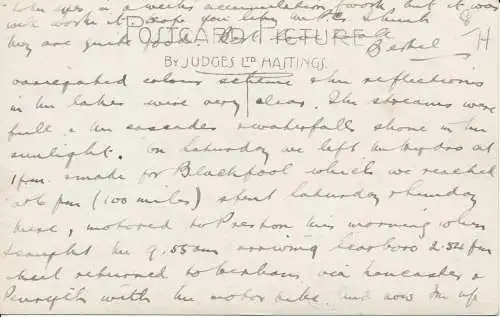 in a weeks accumulation of work but it was
well worth it hope you like these I think
they are quite good. Best love
Bethel
POSTCARD PICTURE
BY JUDGES LTD HASTINGS.
variegated colour scheme the reflections
in the lakes were very clear. The streams were
full & the cascades & waterfalls shone in the
sunlight. On Saturday we left at
1 pm & made for Blackpool which we reached
at 6 pm (100 miles) spent Saturday & Sunday
here, motored to Preston this morning where
I caught the 9.55 am arriving Scarboro 2.52 pm
returned to via Lancaster &
Penrith with the motor bike and now I'm up